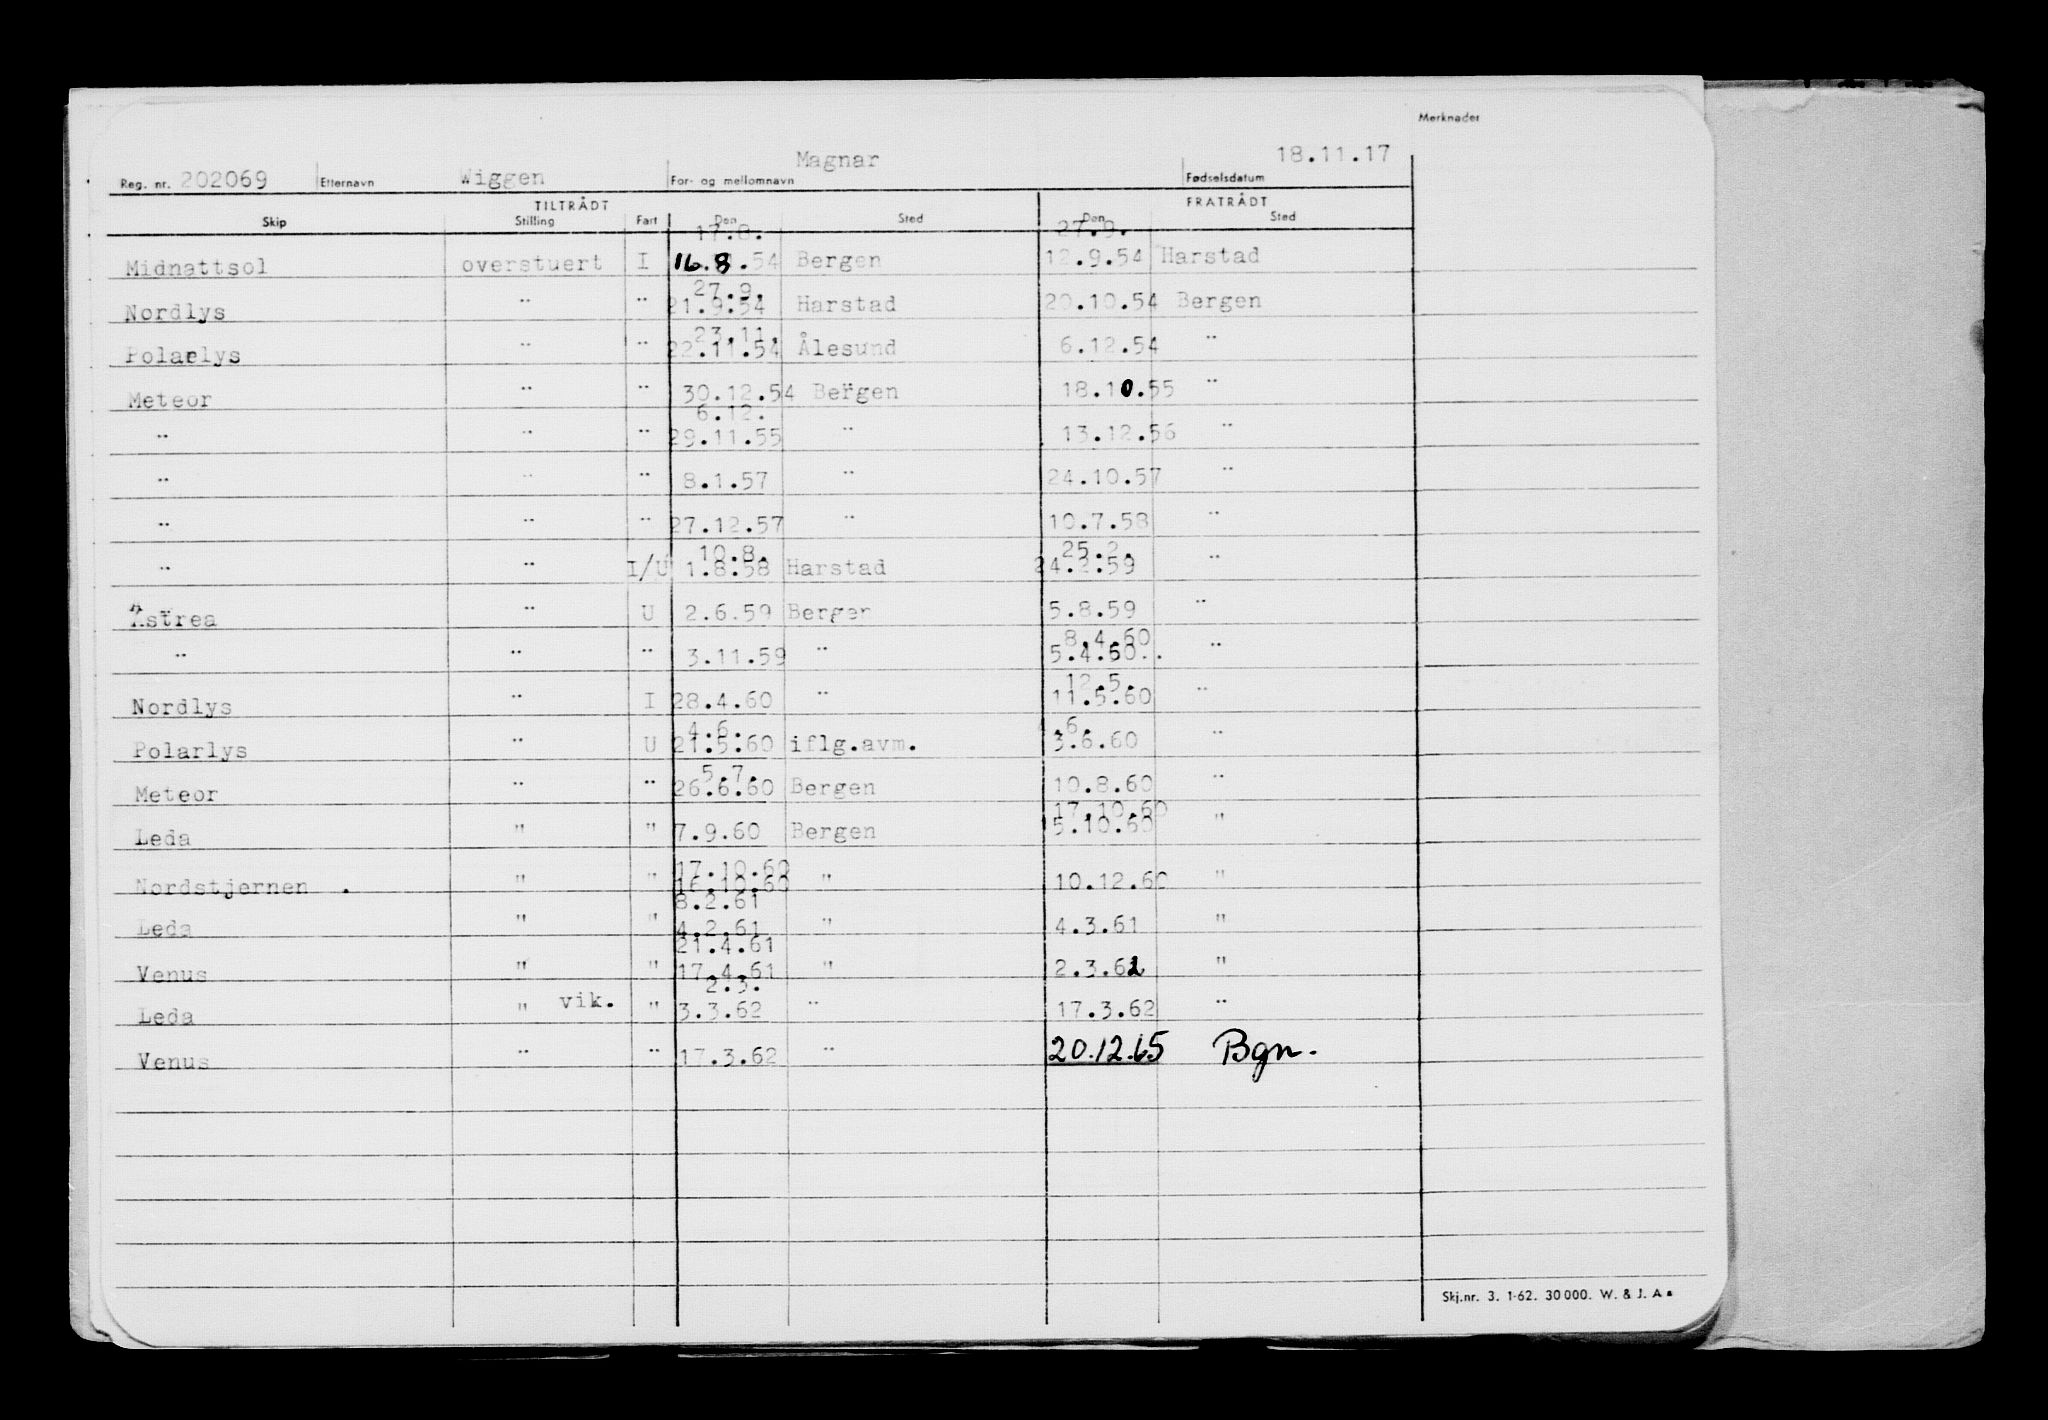 Merknader
Reg. nr. 202069 Etternavn Wiggen For- og mellomnavn Magnar Fødselsdatum 18.11.17
TILTRÅDT FRATRÅDT
Skip Stilling Fart Den Sted Den Sted
17.8. 27.9.
Midnattsol overstuert I 16.8.54 Bergen 12.9.54 Harstad
27.9.
Nordlys " " 21.9.54 Harstad 20.10.54 Bergen
23.11.
Polarlys " " 22.11.54 Ålesund 6.12.54 "
Meteor " " 30.12.54 Bergen 18.10.55 "
6.12.
" " " 29.11.55 " 13.12.56 "
" " " 8.1.57 " 24.10.57 "
" " " 27.12.57 " 10.7.58 "
10.8. 25.2.
" " I/U 1.8.58 Harstad 24.2.59 "
Astrea " U 2.6.59 Bergen 5.8.59 "
8.4.60
" " " 3.11.59 " 5.4.60.. "
12.5.
Nordlys " I 28.4.60 " 11.5.60 "
4.6. 6.
Polarlys " U 21.5.60 iflg.avm. 3.6.60 "
5.7.
Meteor " " 26.6.60 Bergen 10.8.60 "
17.10.60
Leda " " 7.9.60 Bergen 15.10.60 "
17.10.60
Nordstjernen . " " 16.10.60 " 10.12.60 "
8.2.61
Leda " " 4.2.61 " 4.3.61 "
21.4.61
Venus " " 17.4.61 " 2.3.62 "
2.3.
Leda " vik. " 3.3.62 " 17.3.62 "
Venus " " 17.3.62 " 20.12.65 Bgn.
Skj.nr. 3. 1-62. 30 000. W. & J. A s